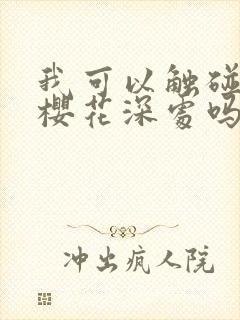 我可以触碰
樱花深处吗
冲出疯人院